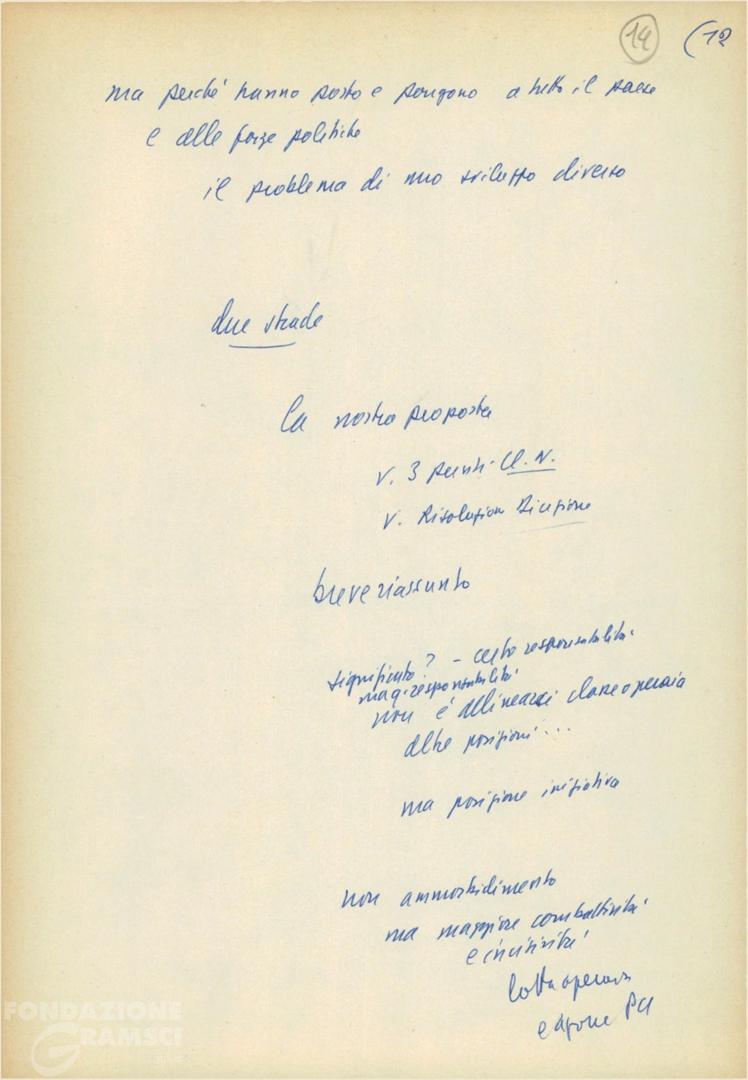 14 (12
ma perché hanno posto e pongono a tutto il paese
e alle forze politiche
il problema di uno sviluppo diverso
due strade
la nostra proposta
v. 3 punti
v. Risoluzione Direzione
breve riassunto
significato? - certo responsabilità
magg. responsabilità
non è allinearsi classe operaia
altre posizioni...
ma posizione iniziativa
non ammorbidimento
ma maggiore combattività
e incisività
lotta operaia
e azione PCI
FONDAZIONE
GRAMSCI